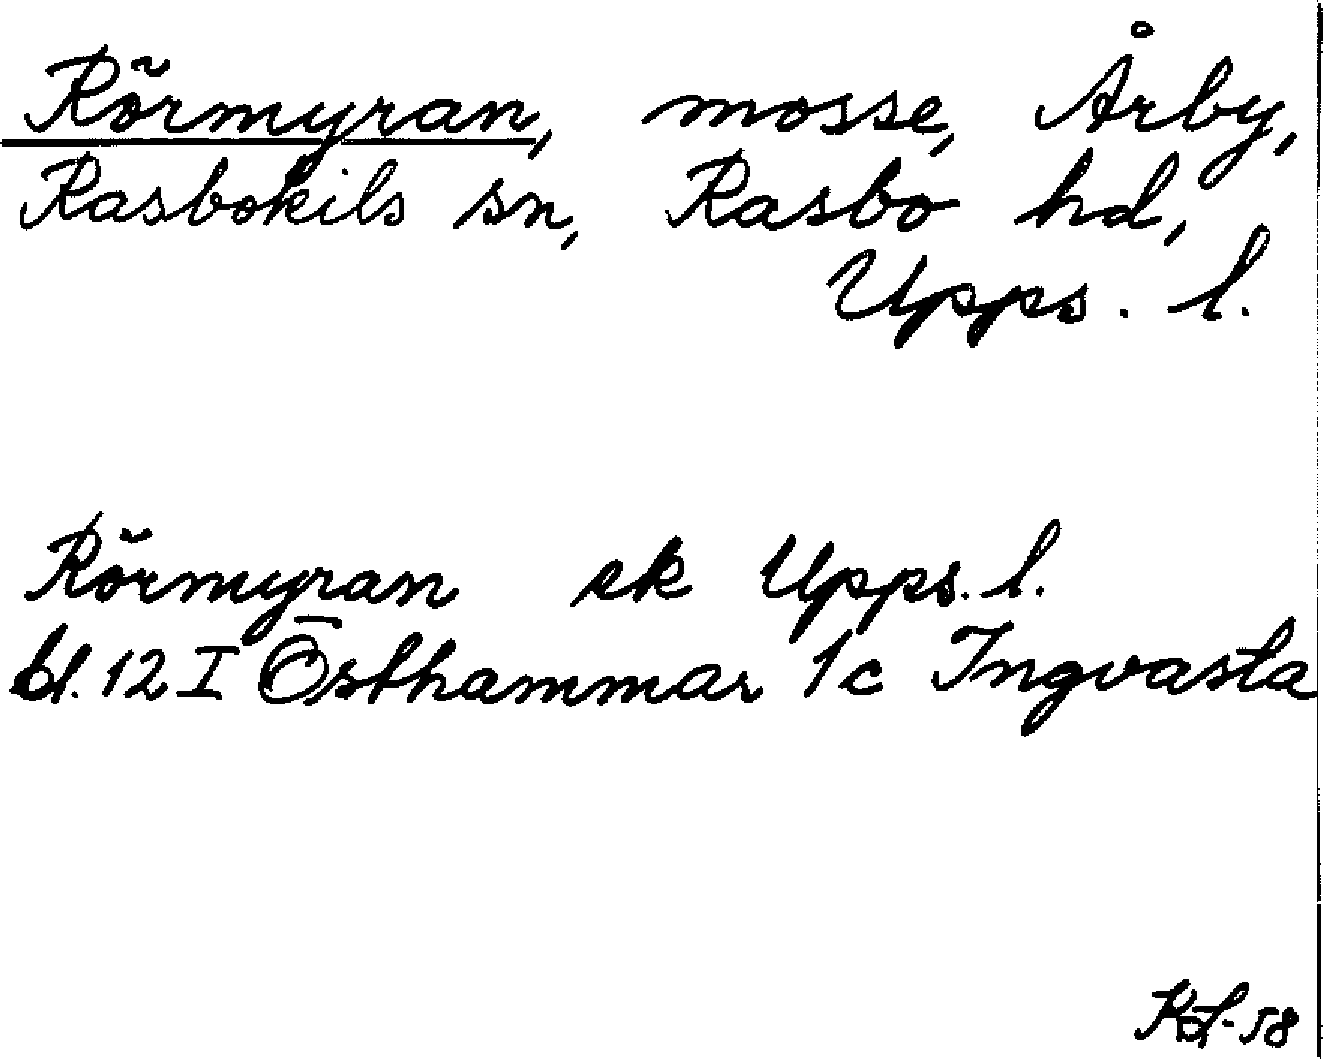 Rörmyran, mosse, Årby,
Rasbokils sn, Rasbo hd,
Upps. l.
Rörmyran ek Upps. l.
bl. 12 I Östhammar 1c Ingvasta